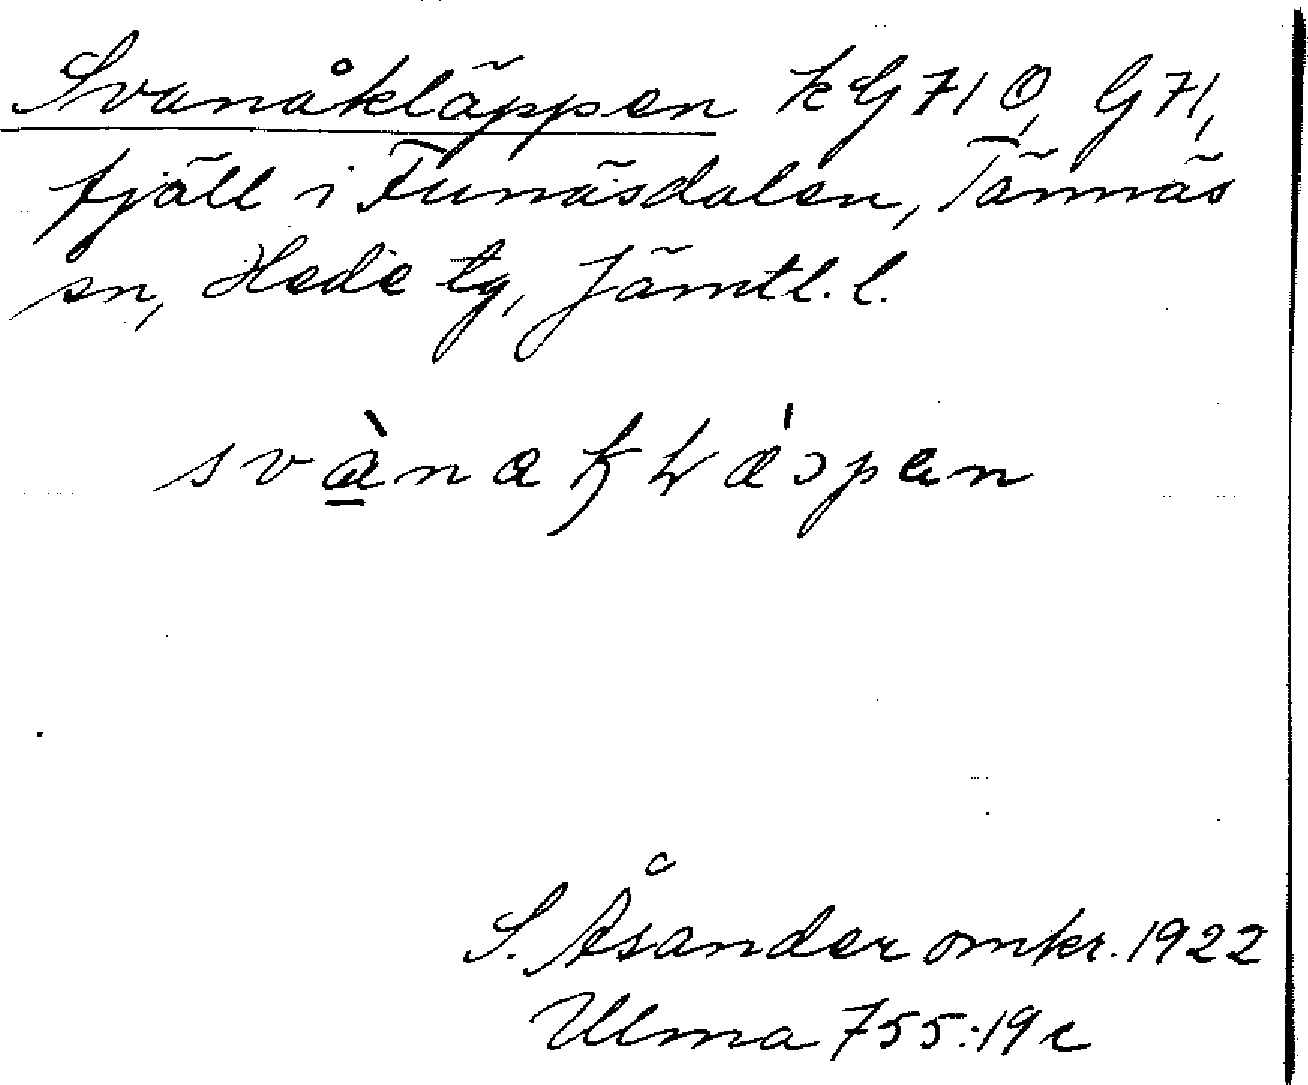 Svanåkläppen kG71Ö, G71,
fjäll i Funäsdalen, Tännäs
sn, Hede tg, Jämtl. l.
S. Åsander omkr. 1922
Ulma 755:19c